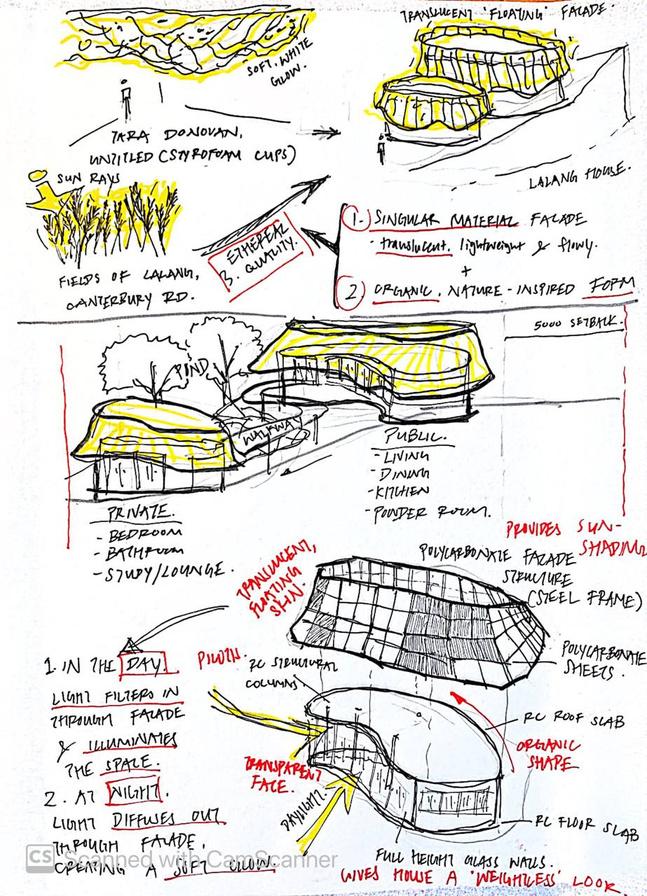 TRANSLUCENT "FLOATING" FACADE.
SOFT, WHITE
GLOW.
TARA DONOVAN,
UNTITLED (STYROFOAM CUPS)
SUN RAYS
LALANG HOUSE.
FIELDS OF LALANG,
CANTERBURY RD.
3. ETHEREAL
QUALITY.
1.) SINGULAR MATERIAL FACADE
- translucent, lightweight & flowy.
+
2) ORGANIC, NATURE-INSPIRED FORM
5000 SETBACK.
POND
WALKWAY
PUBLIC.
- LIVING
- DINING
- KITCHEN
- POWDER ROOM.
PRIVATE.
- BEDROOM
- BATHROOM
- STUDY/LOUNGE.
PROVIDES SUN-
SHADING
POLYCARBONATE FACADE
STRUCTURE
(STEEL FRAME)
TRANSLUCENT,
FLOATING
SKIN
POLYCARBONATE
SHEETS.
1. IN THE DAY
LIGHT FILTERS IN
THROUGH FACADE
& ILLUMINATES
THE SPACE.
2. AT NIGHT,
LIGHT DIFFUSES OUT
THROUGH FACADE,
CREATING A SOFT GLOW
RC STRUCTURAL
COLUMNS.
RC ROOF SLAB
ORGANIC
SHAPE
TRANSPARENT
FACE.
DAYLIGHT.
RC FLOOR SLAB
FULL HEIGHT GLASS WALLS.
GIVES HOUSE A 'WEIGHTLESS' LOOK
CS Scanned with CamScanner